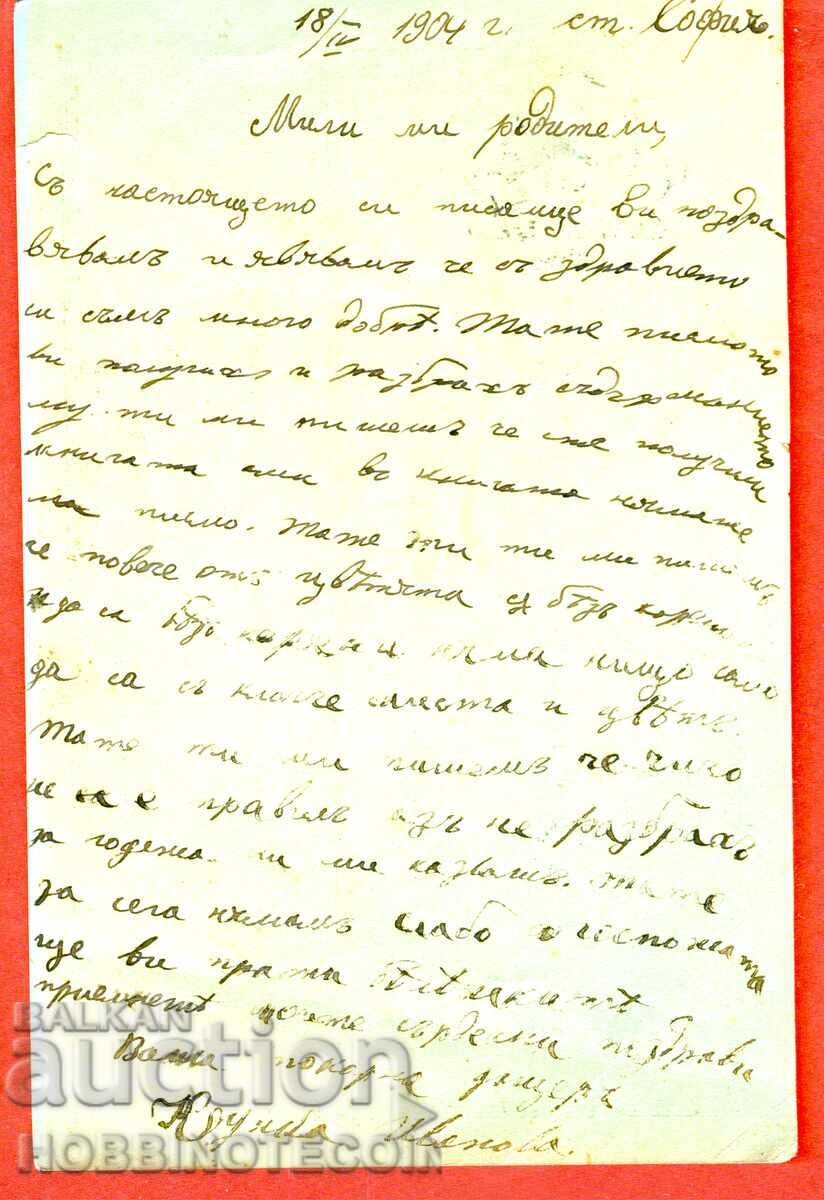 18/IV 1904 г. ст. София.
Мили ми родители,
Съ настоящето си писмице ви поздра-
вявамъ и явявамъ че съ здравието
си съмъ много добрѣ. Тате писмото
ви получихъ и разбрахъ съдържанието
му ти ми пишешъ че сте получили
книгата ами въ книгата нямаше
ма писмо. Тате ти ми пишешъ
че повече отъ цвѣтята са безъ корени
и да са безъ корени няма нищо само
да са съ клонче листа и цвѣтъ.
Тате ти ми пишешъ че чичо
не са е правилъ азъ не разбрахъ
за годежа ли ми казвашъ. Тате
за сега нямамъ слабо
ще ви пратя бѣлѣжкитѣ
приемнетѣ моите сърдечни поздрави
Ваша покорна дъщеря
Иванова.
BALKAN
auction
HOBBINOTECOIN